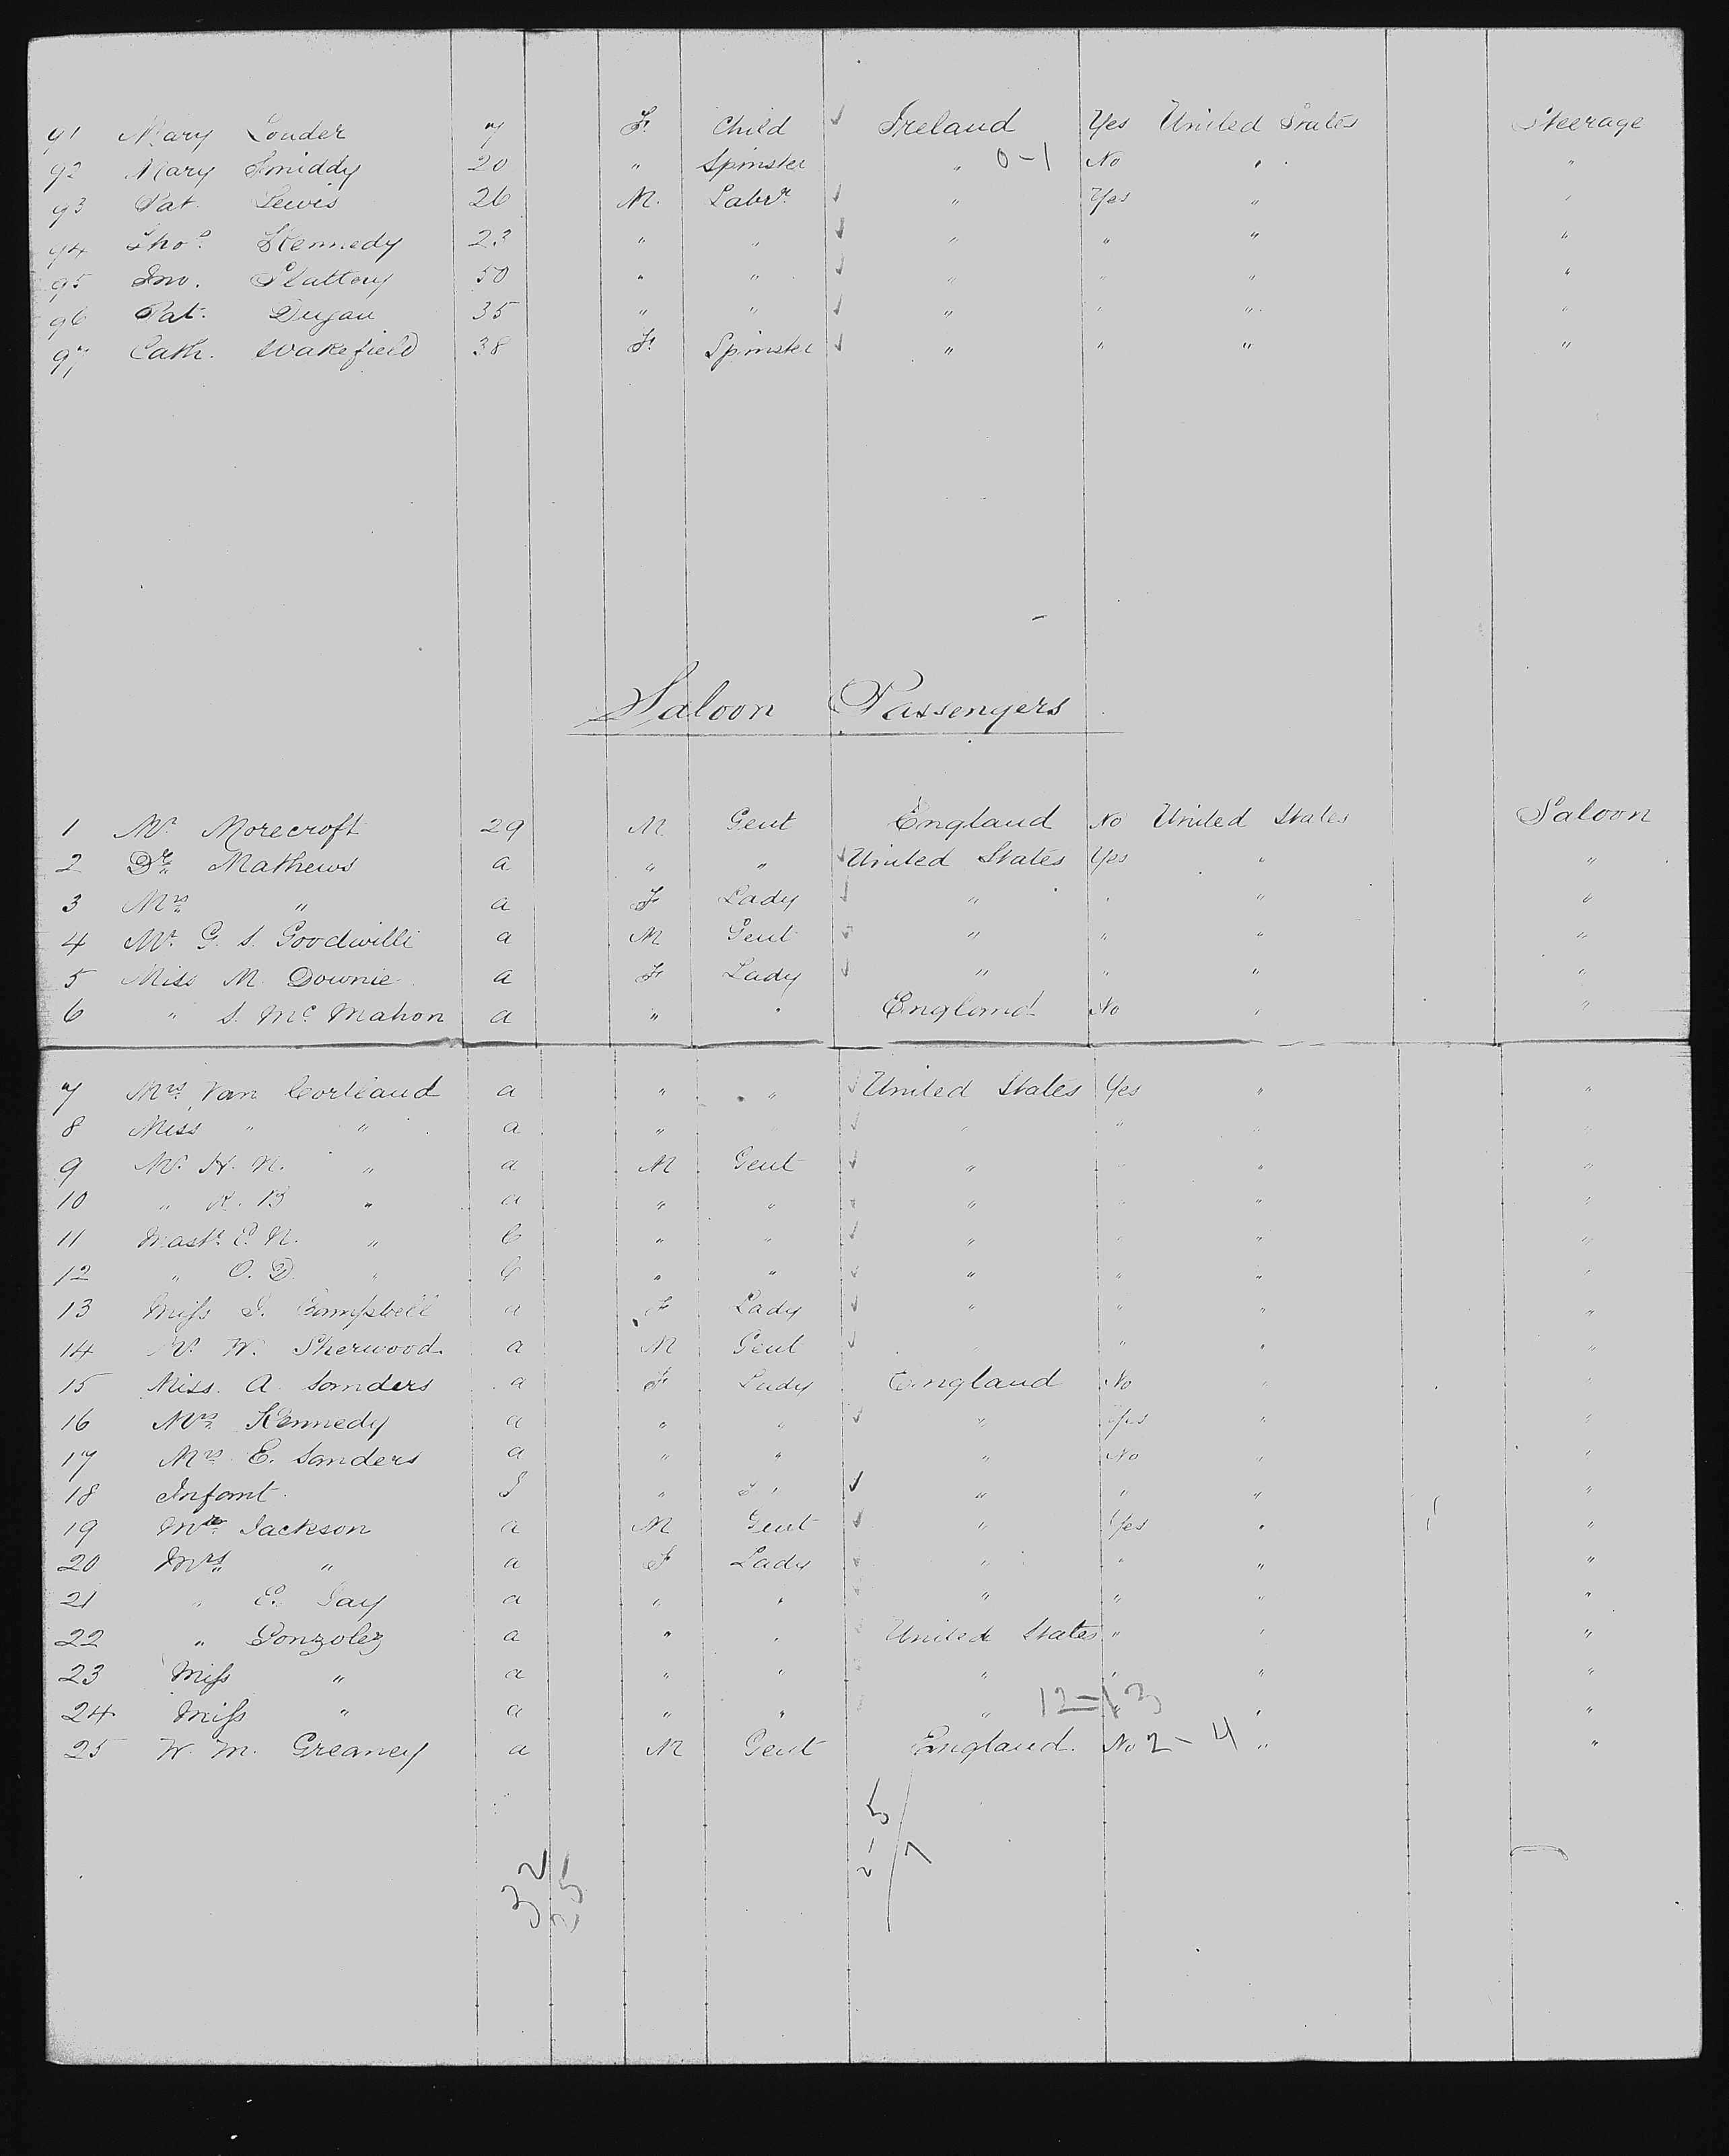 91 Mary Louder 7 F. Child ✓ Ireland Yes United States Steerage
92 Mary Smiddy 20 " Spinster " 0-1 No " "
93 Pat. Lewis 26 M. Labr. ✓ " Yes " "
94 Thos. Kennedy 23 " " ✓ " " " "
95 Jno. Slattery 50 " " ✓ " " " "
96 Pat. Dugan 35 " " ✓ " " " "
97 Cath. Wakefield 38 F. Spinster ✓ " " " "
Saloon Passengers
1 Mr. Morecroft 29 M Gent England No United States Saloon
2 Dr. Mathews a " " ✓ United States Yes " "
3 Mrs " a F Lady ✓ " " " "
4 Mr. G. S. Goodwilli a M Gent ✓ " " " "
5 Miss M. Downie a F Lady ✓ " " " "
6 " S. Mc Mahon a " " England No " "
7 Mrs Van Cortland a " " ✓ United States Yes " "
8 Miss " " a " " ✓ " " " "
9 Mr. H. N. " a M Gent ✓ " " " "
10 " R. B " a " " ✓ " " " "
11 Mastr. E. N. " C " " ✓ " " " "
12 " O. D. " C " " ✓ " " " "
13 Miss I. Campbell a F Lady ✓ " " " "
14 Mr. W. Sherwood a M Gent ✓ " " " "
15 Miss. A. Sanders a F Lady England No " "
16 Mrs Kennedy a " " ✓ " Yes " "
17 Mrs E. Sanders a " " " No " "
18 Infant I " ✓ " " " "
19 Mr. Jackson a M Gent ✓ " Yes " "
20 Mrs " a F Lady ✓ " " " "
21 " E. Jay a " " ✓ " " " "
22 " Gonzolez a " " United States " " "
23 Miss " a " " " " " "
24 Miss " a " " " 12=13 " " "
25 W. M. Greaney a M Gent England. No 2-4 " "
2-5 / 7
32
25